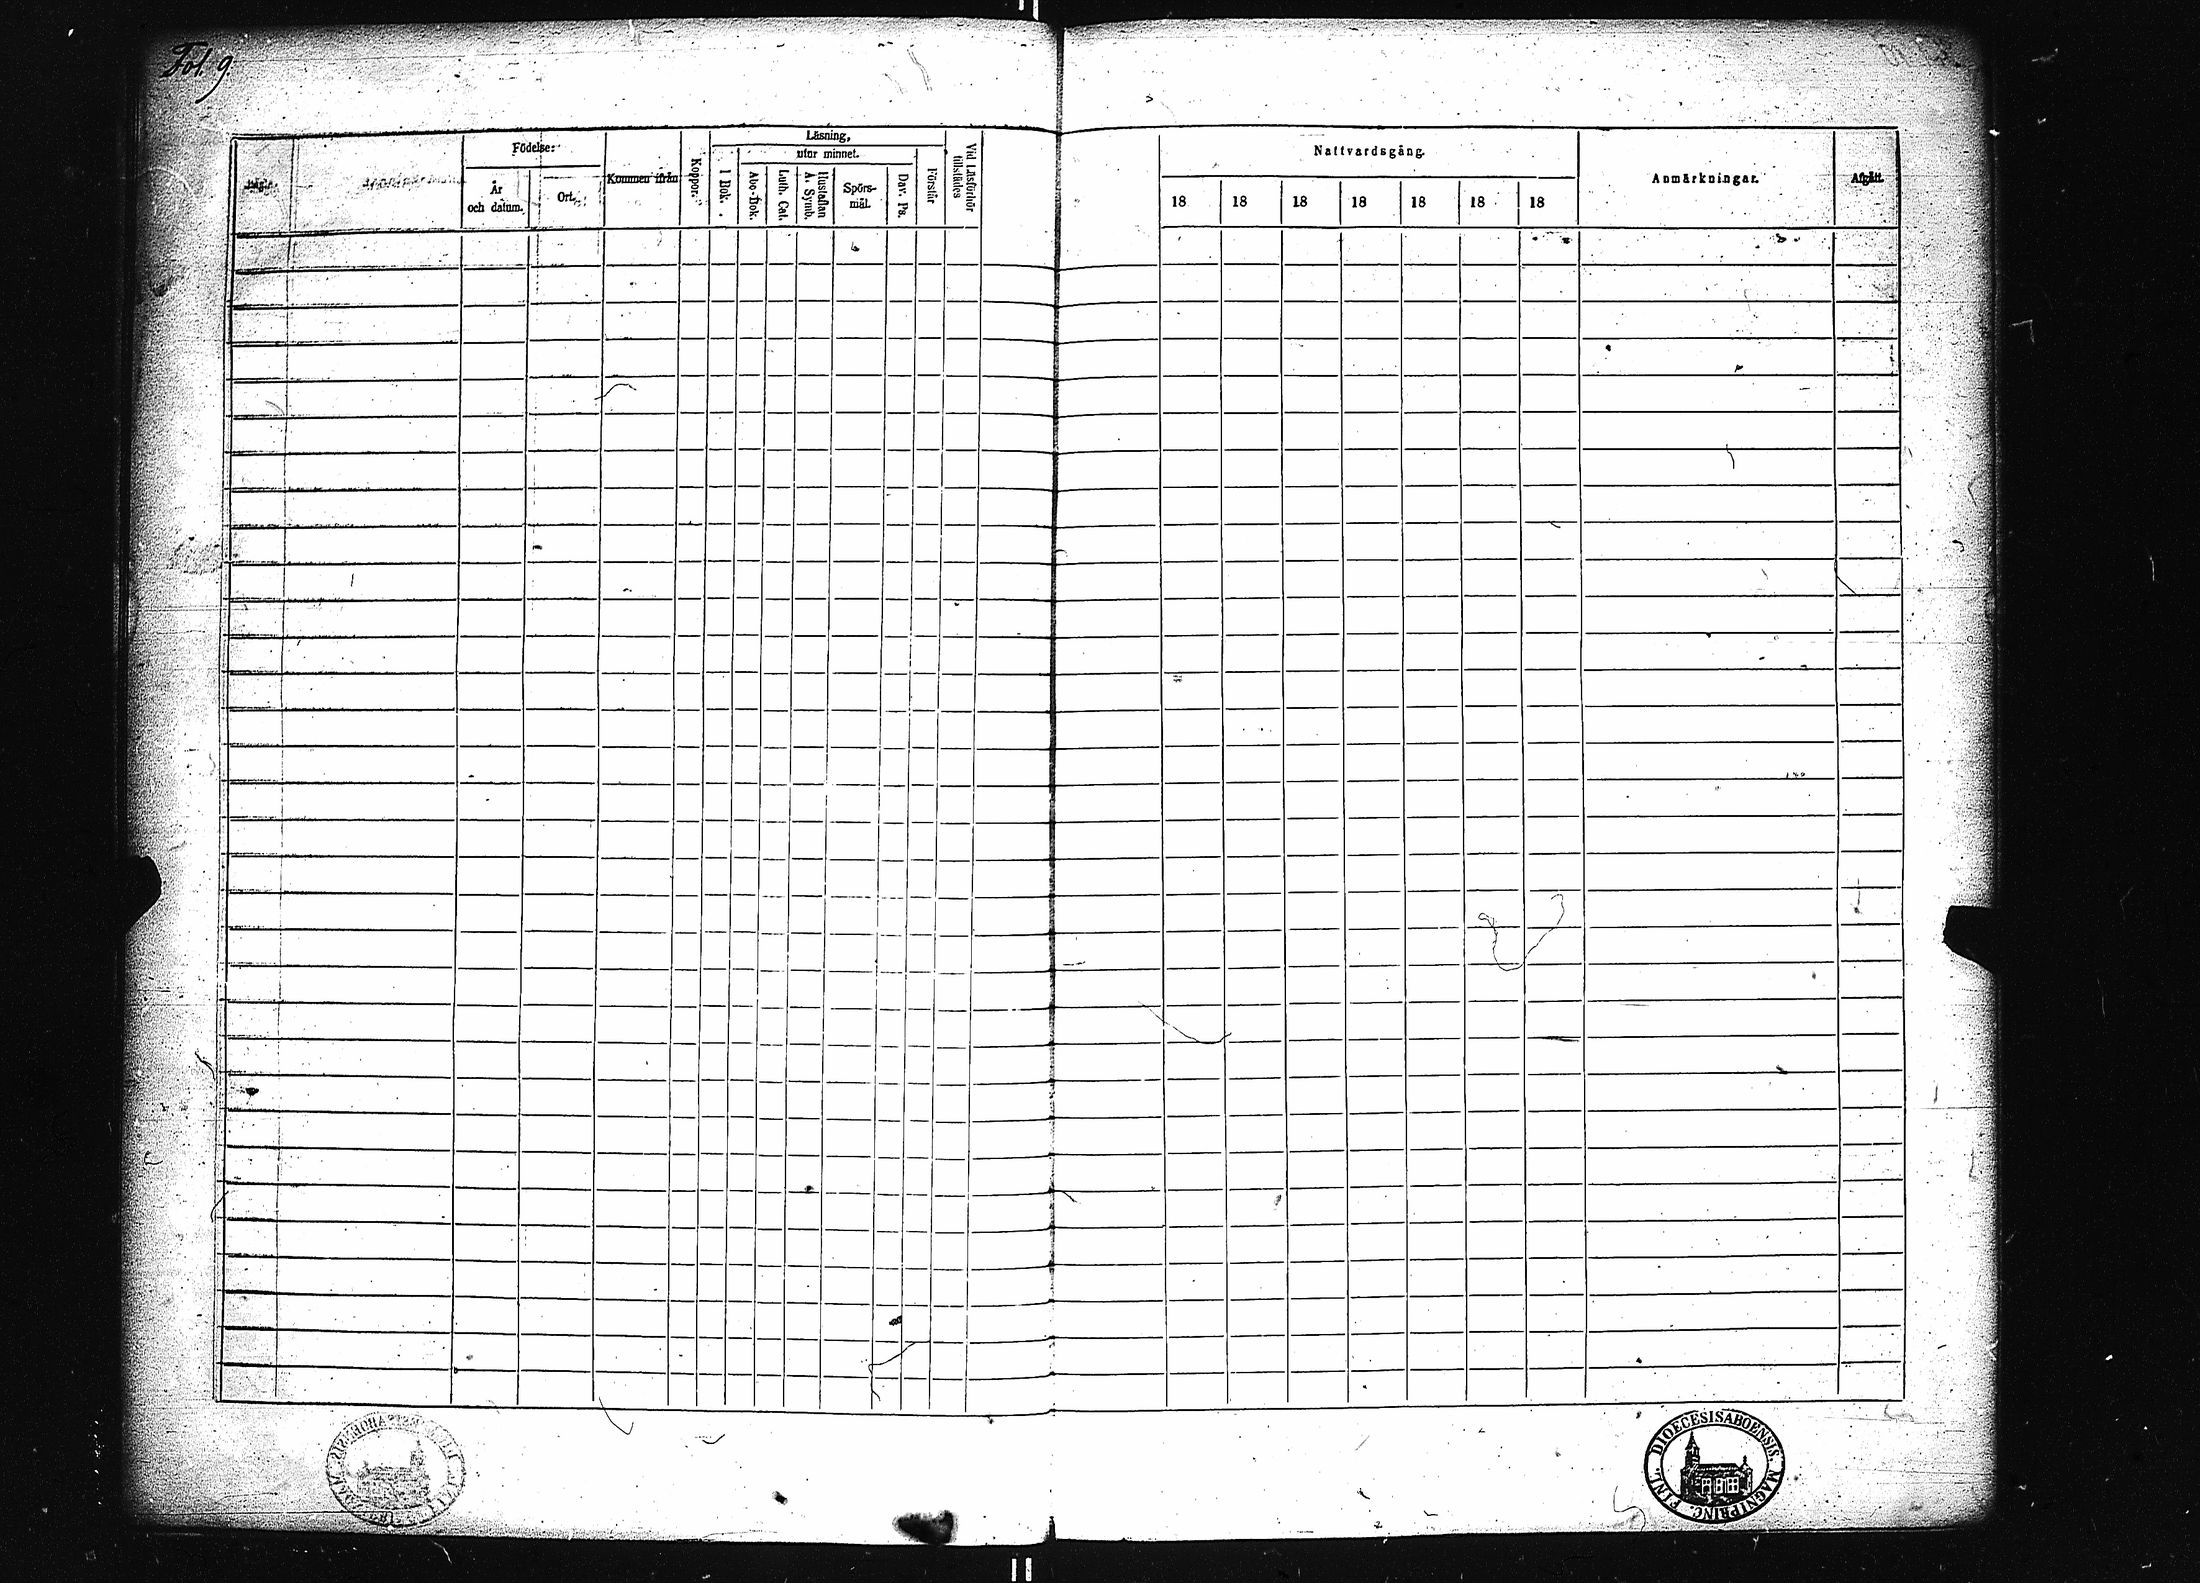 Fol. 9
Födelse:
År
och datum.
Ort.
Kommen ifrån
Koppor.
Läsning,
utur minnet.
I Bok.
Abc-Bok.
Luth. Cat.
Hustaflan
A. Symb.
Spörs-
mål.
Dav. Ps.
Förstår
Vid Läsförhör
tillstädes
Nattvardsgång.
18 18 18 18 18 18 18
Anmärkningar.
Afgått.
DIOECESIS ABOENSIS. MAGNI PRINC. FINL.